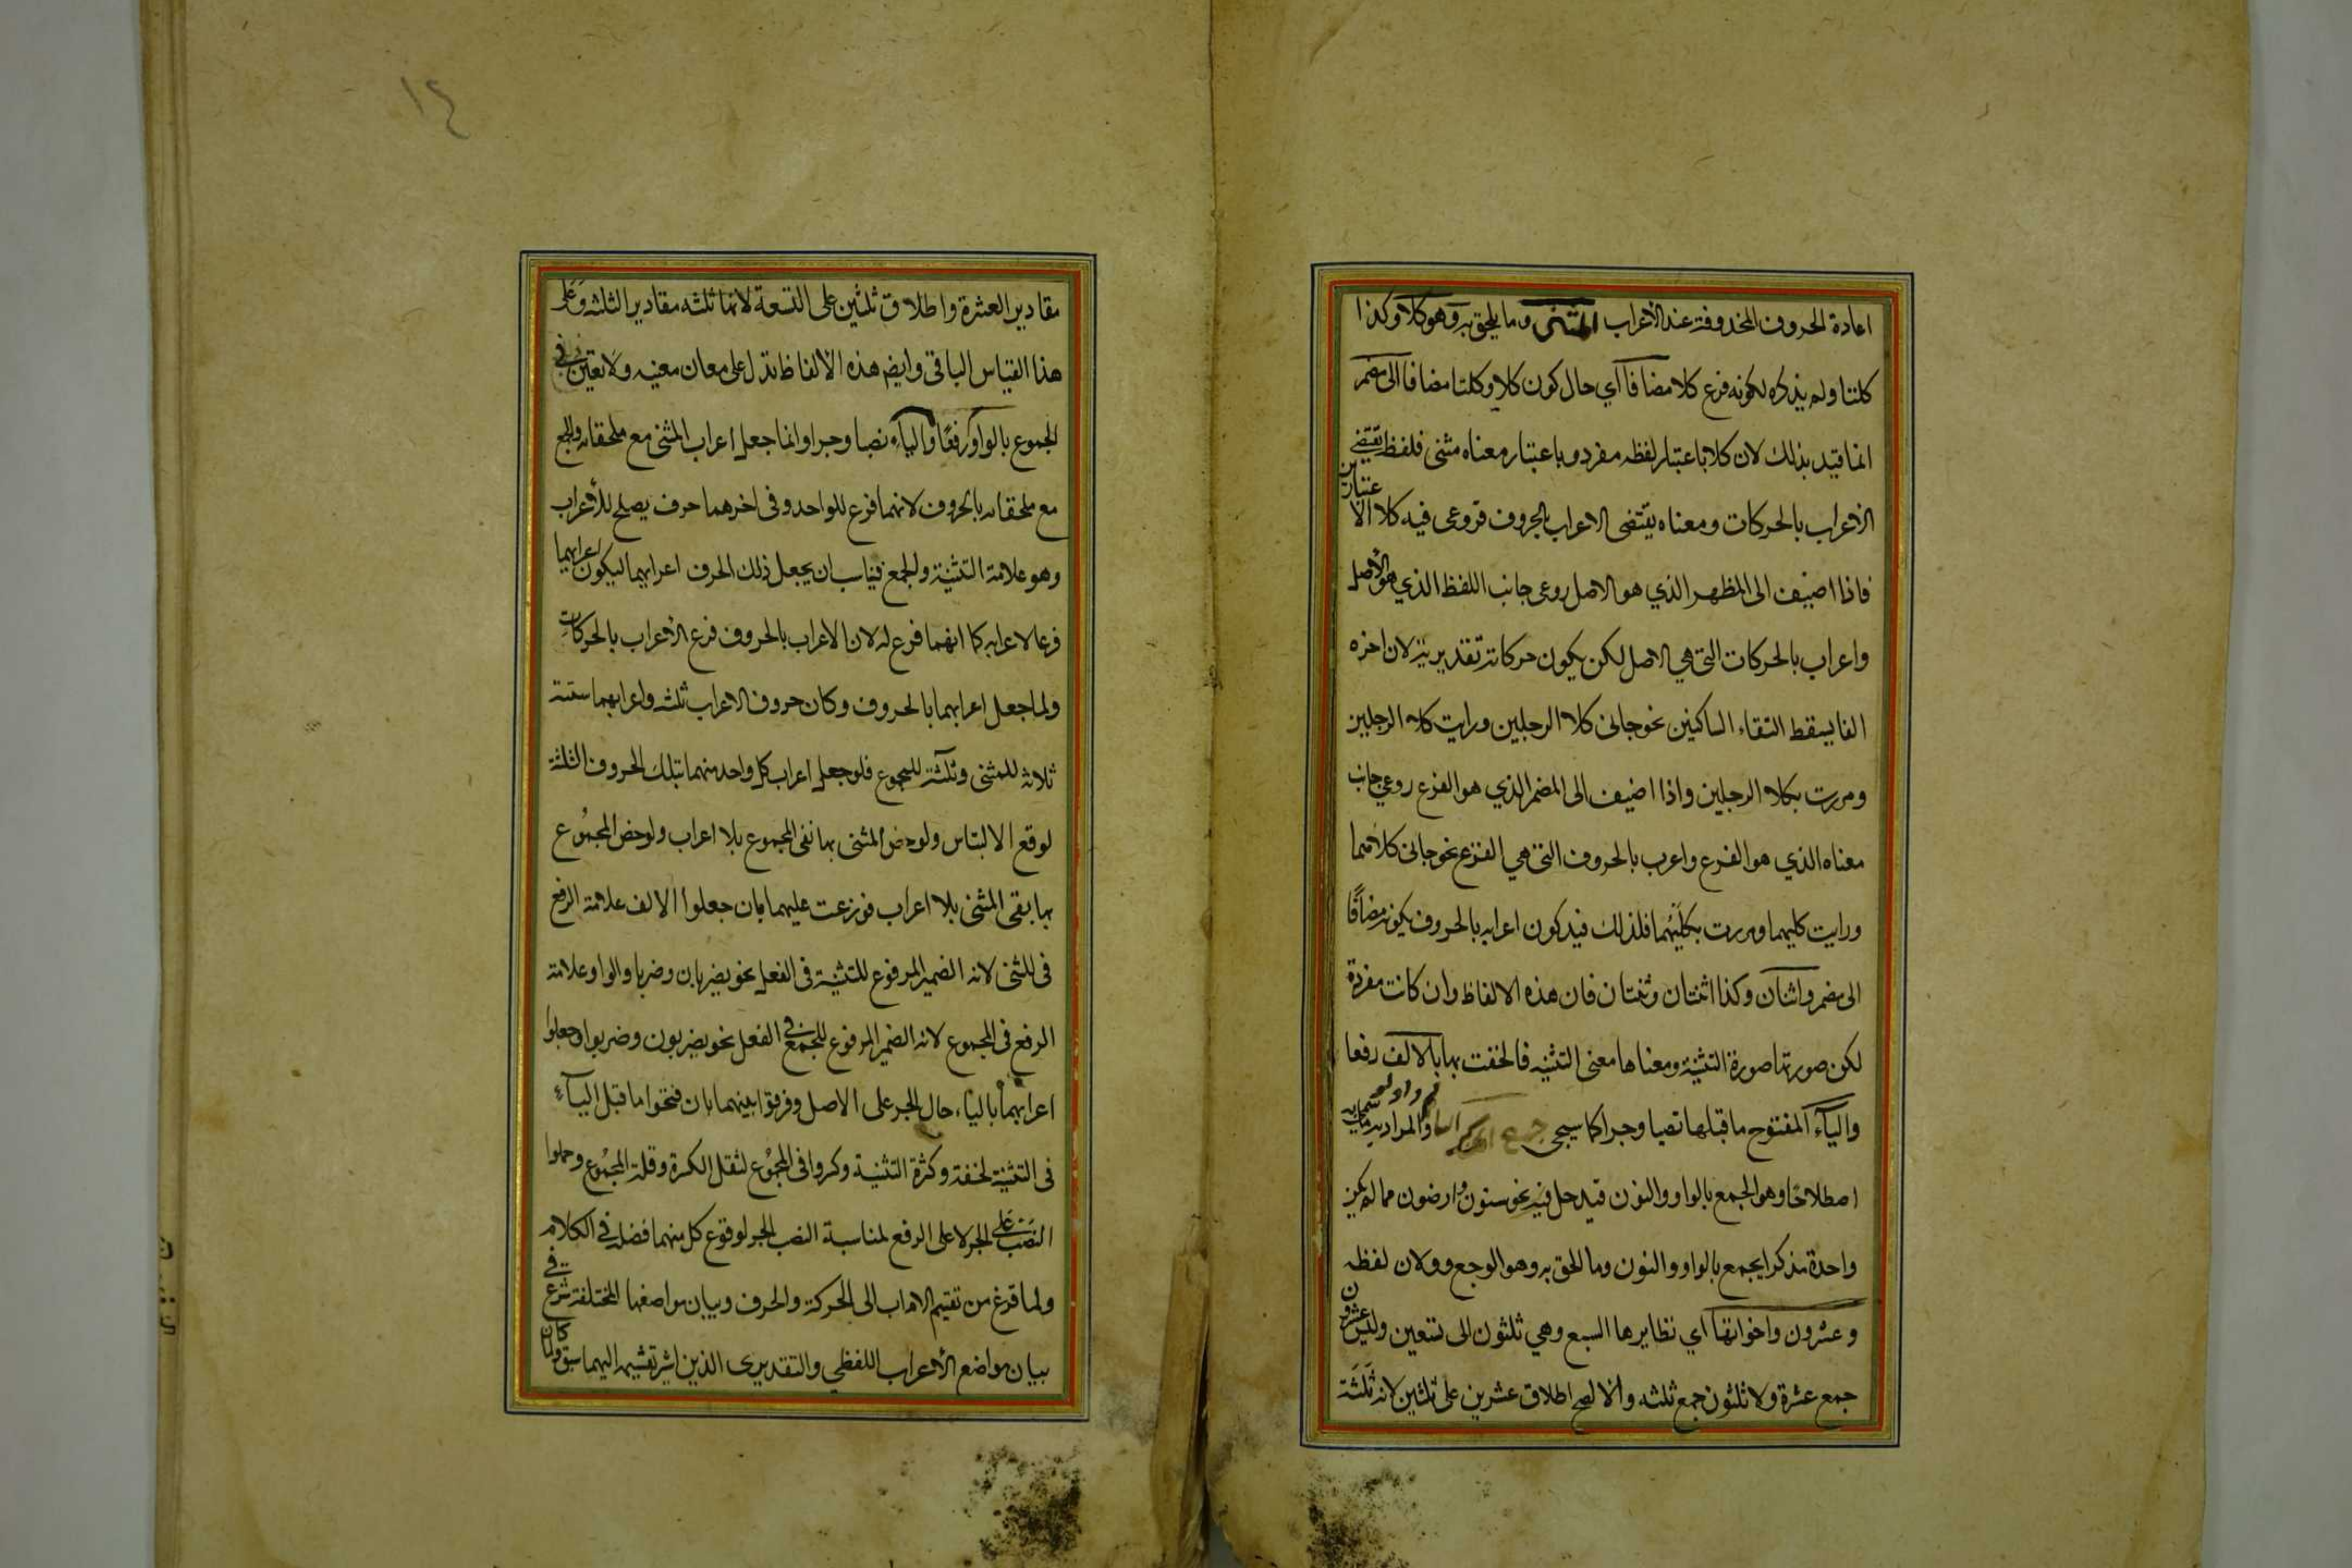 اعادة الحروف المحذوفة عند الاعراب المثنى وما يلحق به وهو كلا وكذا
كلتا ولم يذكره لكونه فرع كلا مضافا اي حال كون كلا وكلتا مضافا الى مضمر
انما قيد بذلك لان كلا باعتبار لفظه مفرد وباعتبار معناه مثنى فلفظه يقتضي
الاعراب بالحركات ومعناه يقتضى الاعراب بالحروف فروعى فيه كلا الاعتبارين
فاذا اضيف الى المظهر الذي هو الاصل روعى جانب اللفظ الذي هو الاصل
واعراب بالحركات التي هي الاصل لكن يكون حركاته تقديرية لان اخره
الفا يسقط التقاء الساكنين نحو جانى كلا الرجلين ورايت كلا الرجلين
ومررت بكلا الرجلين واذا اضيف الى المضمر الذي هو الفرع روعي جانب
معناه الذي هو الفرع واعرب بالحروف التي هي الفرع نحو جانى كلاهما
ورايت كليهما ومررت بكليهما فلذلك قيد كون اعرابه بالحروف بكونه مضافا
الى مضمر واثنان وكذا اثنتان وثنتان فان هذه الالفاظ وان كانت مفردة
لكن صورتها صورة التثنية ومعناها معنى التثنيه فالحقت بها بالالف رفعا
والياء المفتوح ما قبلها نصبا وجرا كما سيجى جمع المذكر السالم والمراد به ما سمى به
اصطلاحا وهو الجمع بالواو والنون فيدخل فيه نحو سنون وارضون مما لم يكن
واحدة مذكرا يجمع بالواو والنون وما الحق به وهو الوجمع وولان لفظه
وعشرون واخواتها اي نظايرها السبع وهي ثلثون الى تسعين وليس عشرون
جمع عشرة ولا ثلثون جمع ثلثه والا لصح اطلاق عشرين على ثلثين لانه ثلثة
١٤
مقادير العشرة واطلاق ثلثين على التسعة لانها ثلثه مقادير الثلثه وعلى
هذا القياس الباقى وايضا هذه الالفاظ تدل على معان معينه ولا تعين في
الجموع بالواو رفعا والياء نصبا وجرا وانما جعل اعراب المثنى مع ملحقاته والجمع
مع ملحقاته بالحروف لانهما فرع للواحد وفى اخرهما حرف يصلح للاعراب
وهو علامة التثنية والجمع فيناسب ان يجعل ذلك الحرف اعرابهما ليكون اعرابهما
فرعا لاعرابه كما انهما فرع له لان الاعراب بالحروف فرع الاعراب بالحركات
ولما جعل اعرابهما بالحروف وكان حروف الاعراب ثلثه واعرابهما ستة
ثلاثه للمثنى وثلثة للمجموع فلو جعل اعراب كل واحد منهما بتلك الحروف الثلثة
لوقع الالتباس ولو خص المثنى بها نفى المجموع بلا اعراب ولو خص المجموع
بها بقى المثنى بلا اعراب فوزعت عليهما بان جعلوا الالف علامة الرفع
فى المثنى لانه الضمير المرفوع للتثنية فى الفعل نحو يضربان وضربا والواو علامة
الرفع فى المجموع لانه الضمير المرفوع للجمع في الفعل نحو يضربون وضربوا وجعلوا
اعرابهما بالياء حال الجر على الاصل وفرقوا بينهما بان فتحوا ما قبل الياء
فى التثنية لخفة وكثرة التثنية وكروا فى المجموع لثقل الكرة وقلة المجموع وحملوا
النصب على الجر لا على الرفع لمناسبة النصب الجر لوقوع كل منهما فضله في الكلام
ولما فرغ من تقسيم الاعراب الى الحركة والحرف وبيان مواضعها المختلفة شرع في
بيان مواضع الاعراب اللفظي والتقديرى الذين اشير تقسيمه اليهما سبق ولما كان